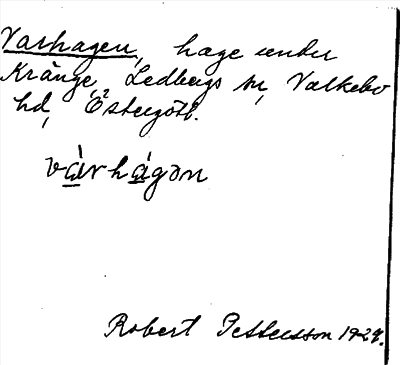 Varhagen, hage under
Krånge, Ledbergs sn, Valkebo
hd, Östergötl.
vàrhágən
Robert Pettersson 1929.